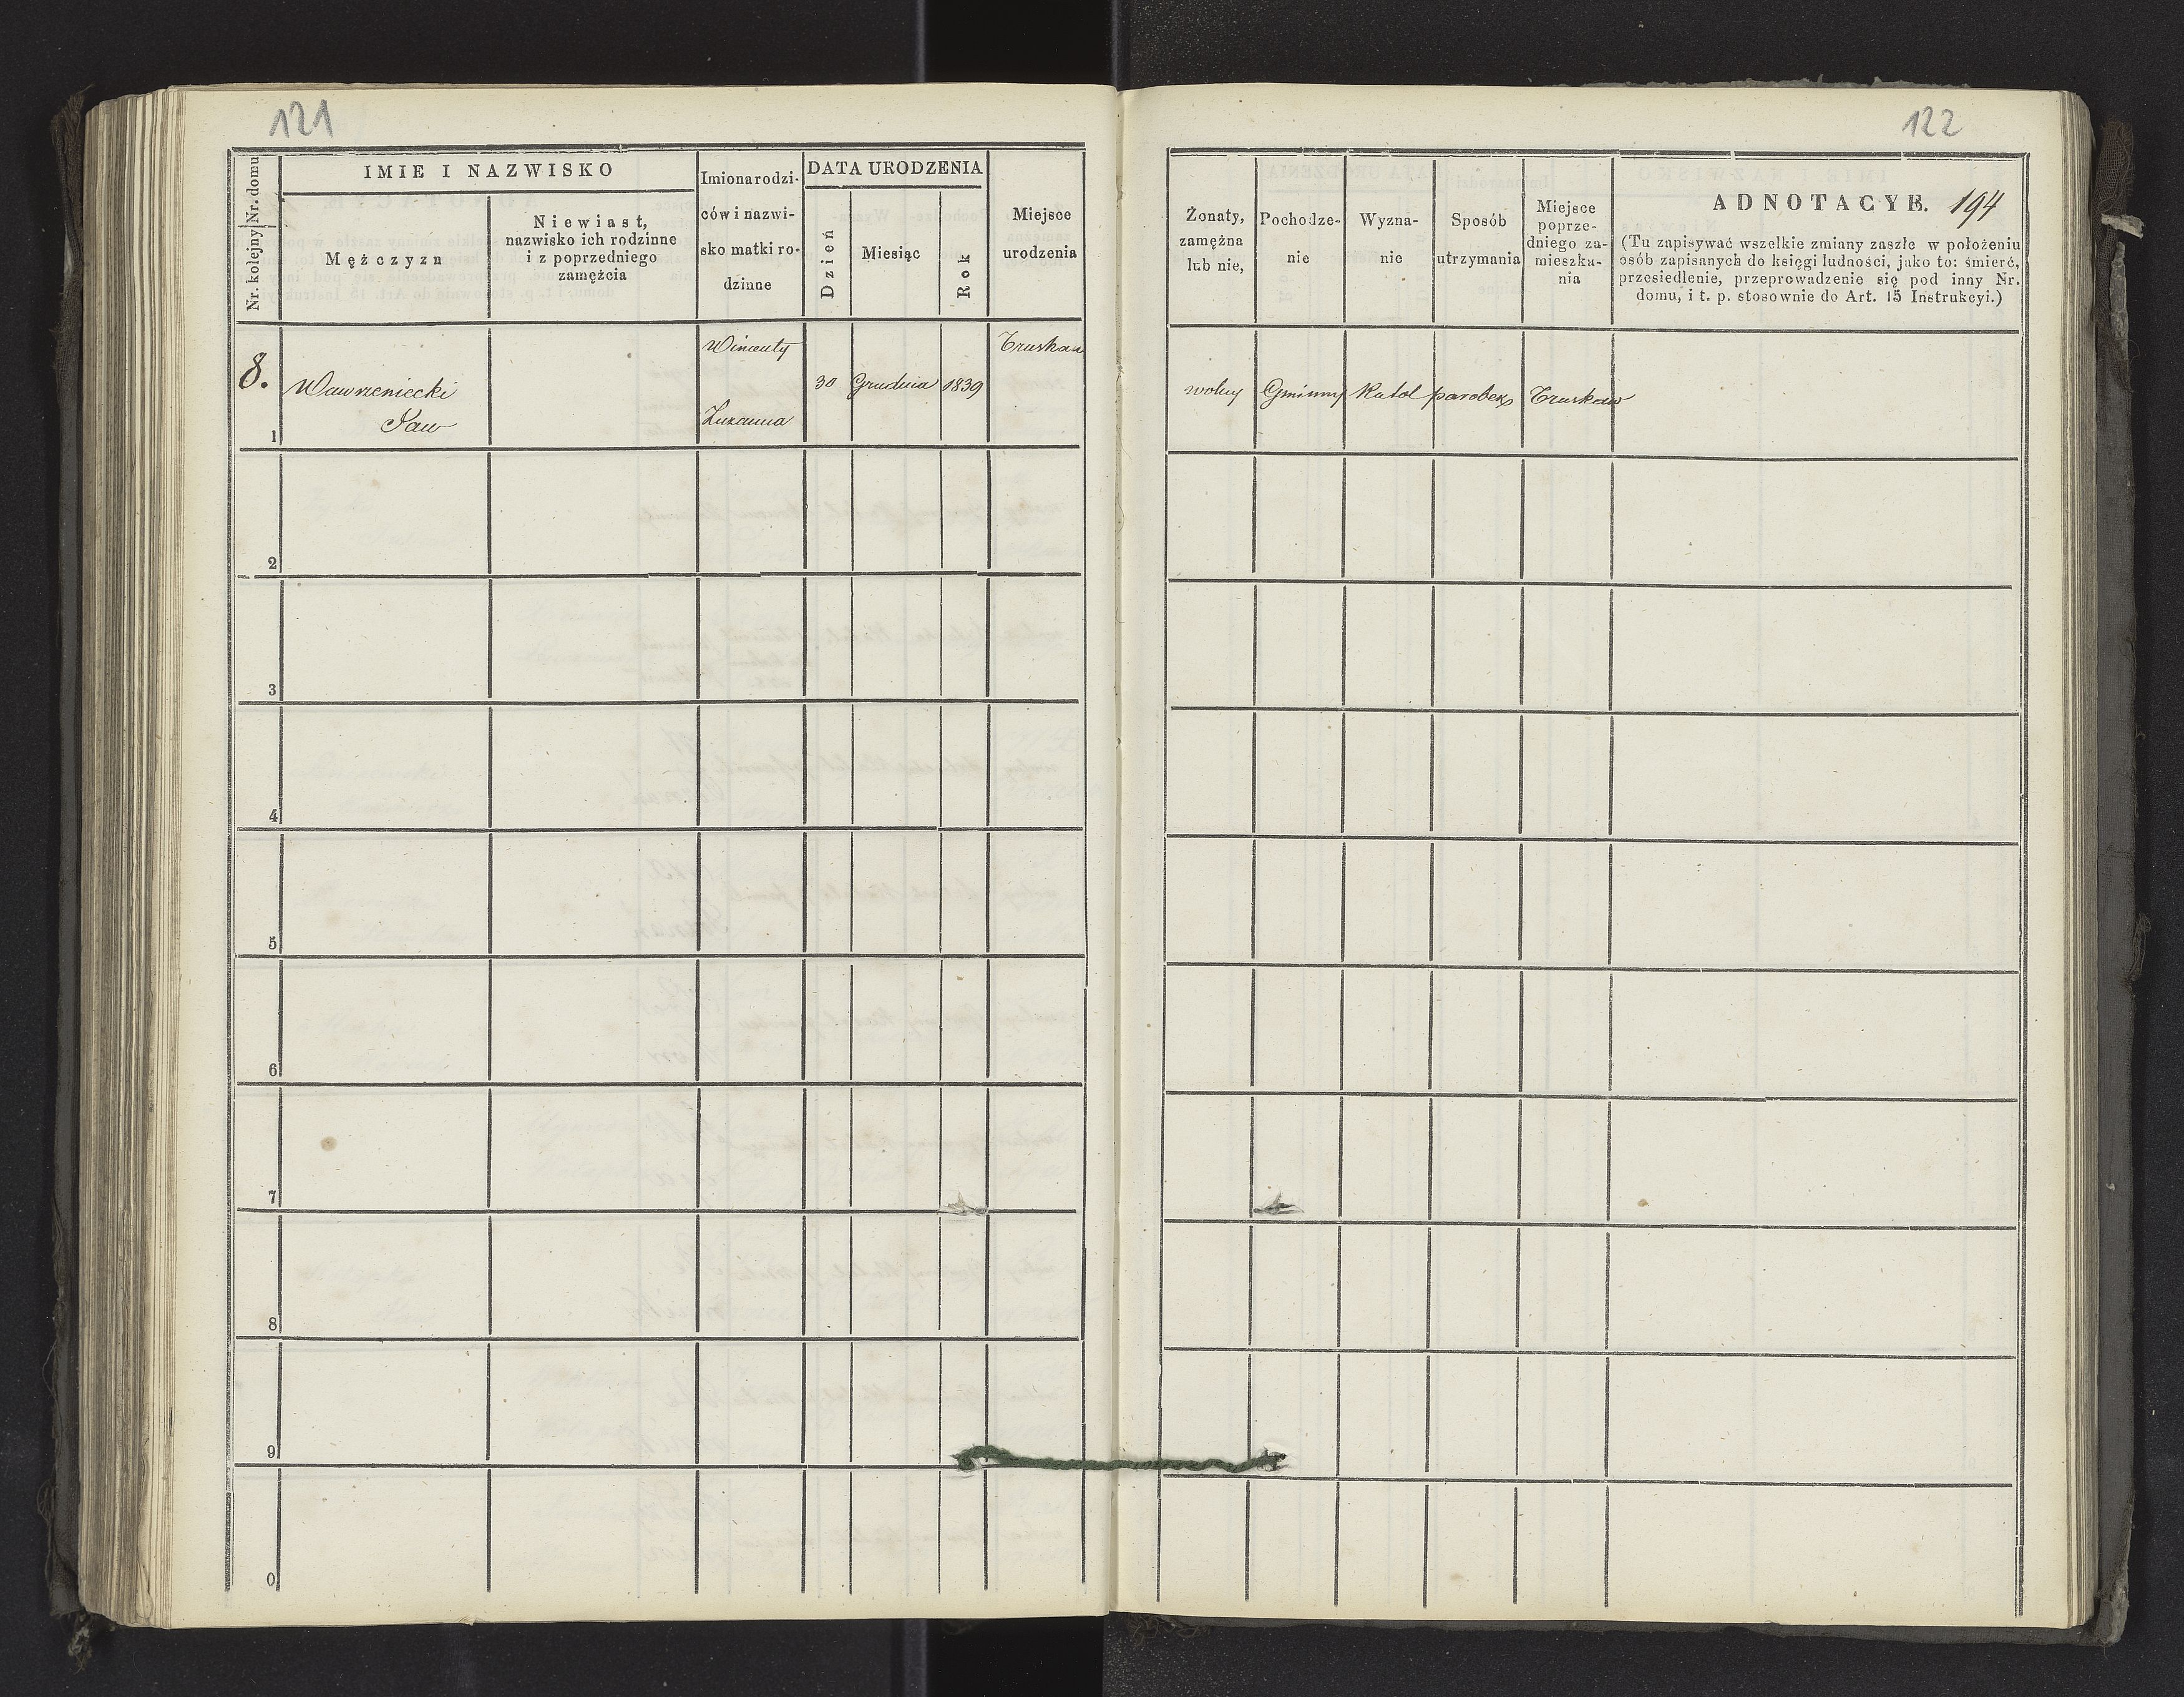 121
Nr. kolejny Nr. domu
IMIE I NAZWISKO
Mężczyzn
Niewiast,
nazwisko ich rodzinne
i z poprzedniego
zamężcia
Imiona rodzi-
ców i nazwi-
sko matki ro-
dzinne
DATA URODZENIA
Dzień
Miesiąc
Rok
Miejsce
urodzenia
8.
Wawrzeniecki
Jan
Wincenty
Zuzanna
30 Grudnia 1839
Truskaw
1
2
3
4
5
6
7
8
9
0
122
Żonaty,
zamężna
lub nie,
Pochodze-
nie
Wyzna-
nie
Sposób
utrzymania
Miejsce
poprze-
dniego za-
mieszka-
nia
ADNOTACYE. 194
(Tu zapisywać wszelkie zmiany zaszłe w położeniu
osób zapisanych do księgi ludności, jako to: śmierć,
przesiedlenie, przeprowadzenie się pod inny Nr.
domu, i t. p. stosownie do Art. 15 Instrukcyi.)
wolny Gminny Katol parobek Truskaw